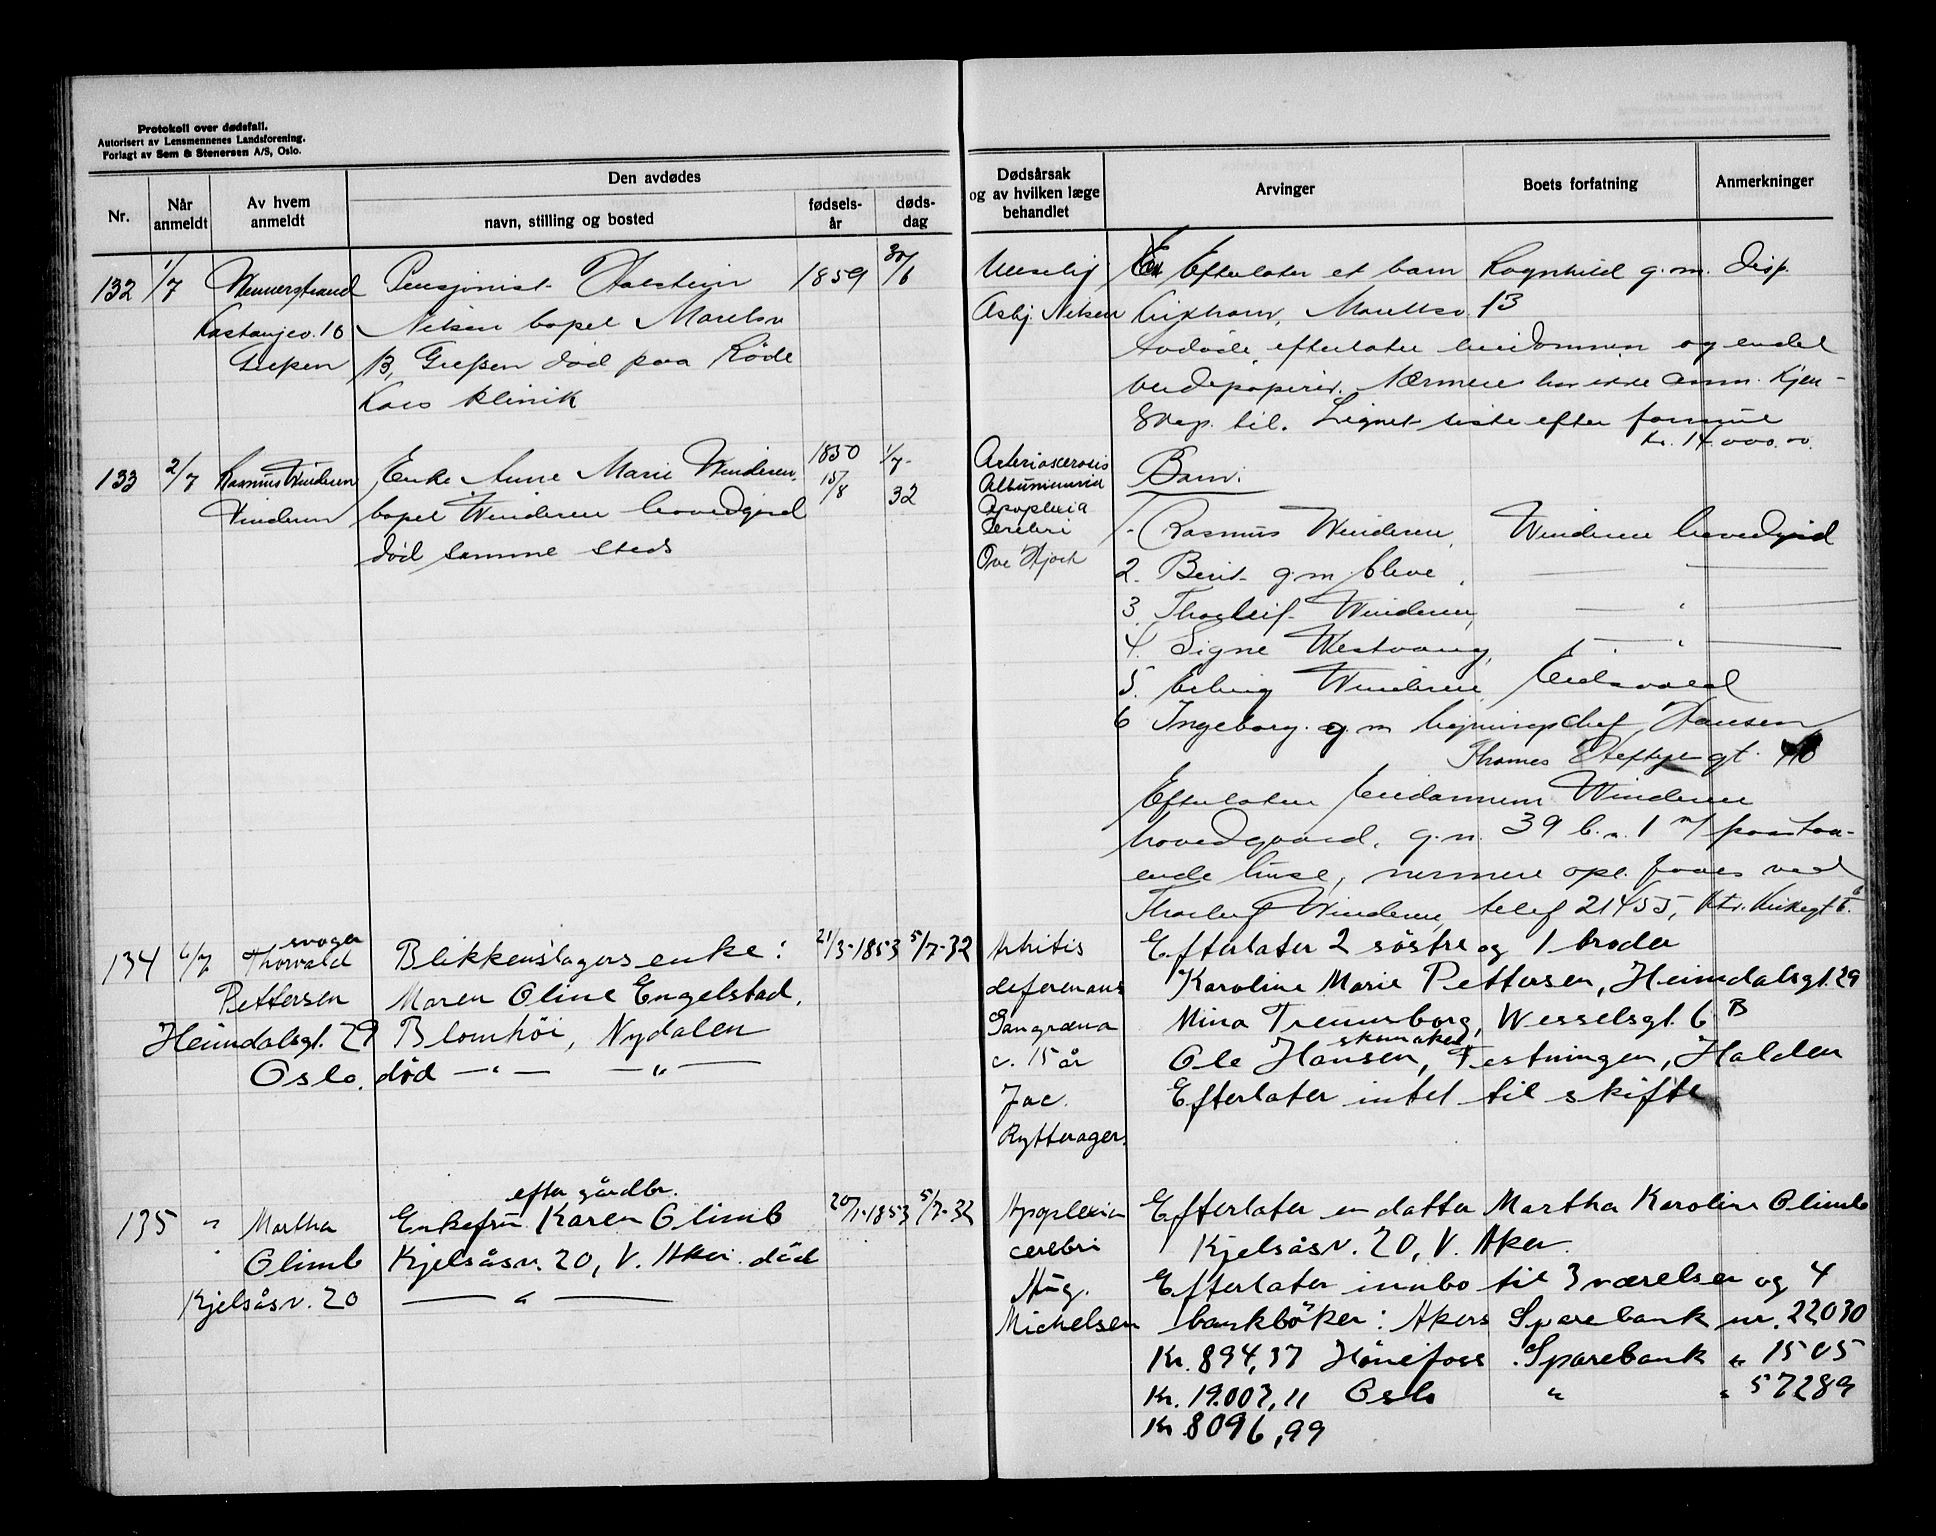 Protokoll over dødsfall.
Autorisert av Lensmennenes Landsforening.
Forlagt av Sem & Stenersen A/S, Oslo.
Nr.
Når anmeldt
Av hvem anmeldt
Den avdødes
navn, stilling og bosted
fødsels-år
døds-dag
Dødsårsak og av hvilken læge behandlet
Arvinger
Boets forfatning
Anmerkninger
132 1/7 Wennerstrand
Kastanjev. 10
Grefsen
Pensjonist Halstein
Nilsen bopel Maretsv
13, Grefsen død paa Röde
Kors klinik
1859 30/6
Asbj. Nilsen
Efterlater et barn Ragnhild g.m. disp.
Maretsv. 13
Avdøde efterlater eiendommen og endel
verdipapirer. Nærmere har ikke anm. kjen-
skap til. Lignet siste efter formue
kr. 14000.00
133 2/7 Rasmus Winderen
Vinderen
Enke Anne Marie Winderen,
bopel Winderen hovedgård
død samme steds
1850 15/8
1/7- 32
Arteriosclerosis
Albuminuria
Apoplexia
Cerebri
Ove Hjort
Barn:
1. Rasmus Winderen, Winderen hovedgård
2. Berit g.m. Cleve, — —
3. Thorleif Winderen, — " —
4. Signe Westvang, — " —
5. Erling Winderen, Eidsvold
6 Ingeborg g.m. bygningschef Hansen
Thomas Heftyes gt. 40
Efterlater eiendommen Winderen
hovedgaard, g.n. 39 b.n. 1 m/ paastaa-
ende huse, nærmere opl. faaes ved
Thorleif Winderen, telef 21455, Ktr. Kirkegt 6.
134 6/7 svoger
Thorvald
Pettersen
Heimdalsgt. 29
Oslo.
Blikkenslagers enke:
Maren Oline Engelstad,
Blomhöi, Nydalen
død — " — — " —
21/3-1853 5/7-32
Artritis
deformans
Gangræna
c. 15 år
Jac.
Rytterager.
Efterlater 2 söstre og 1 broder
Karoline Marie Pettersen, Heimdalsgt. 29
Mina Trennsborg, Wesselsgt. 6 B
skomaker
Ole Hansen, Festningen, Halden
Efterlater intet til skifte
135 " Martha
" Olimb
Kjelsåsv. 20
efter gårdbr.
Enkefru Karen Olimb
Kjelsåsv. 20, V. Aker. död
— " —
20/7-1853 5/7-32
Apoplexia
cerebri
Aug.
Michelsen
Efterlater en datter Martha Karoline Olimb
Kjelsåsv. 20, V. Aker.
Efterlater innbo til 3 værelser og 4
bankböker: Akers Sparebank nr. 22030
Kr. 894,37 Hönefoss Sparebank " 1505
Kr. 19.007,11 Oslo " " 57289
Kr 8096,99